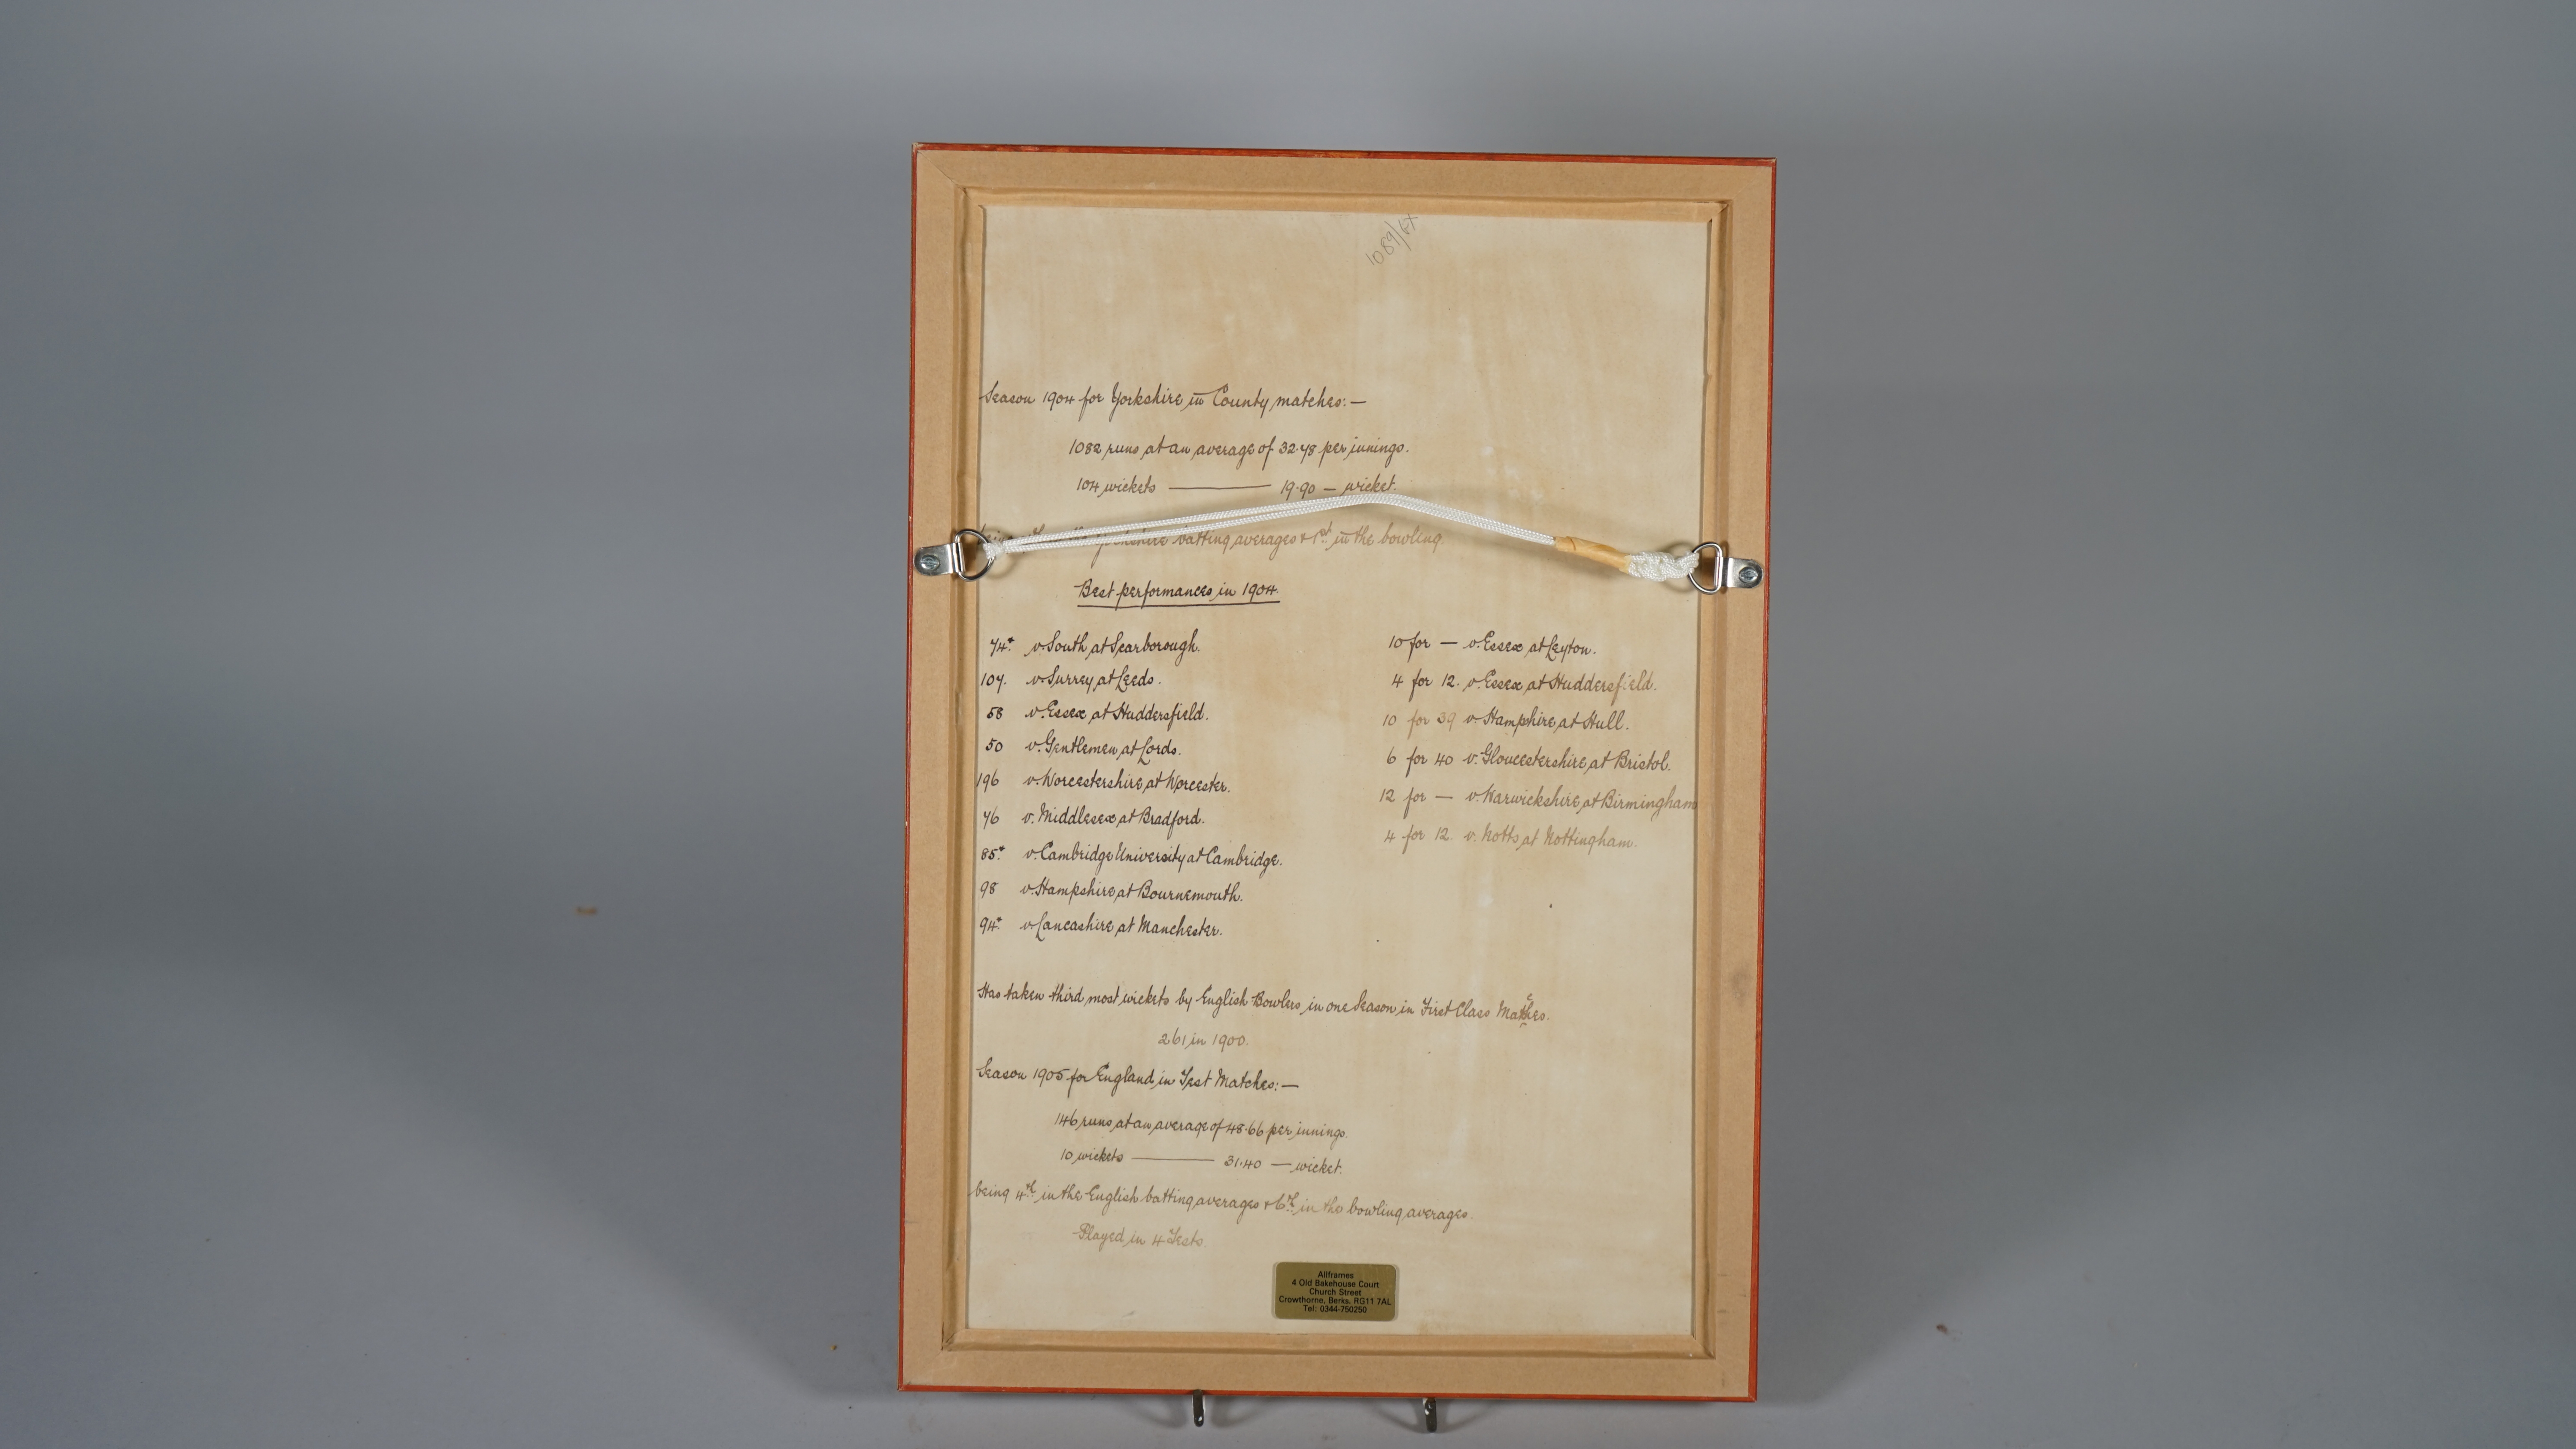 1089/6X
Season 1904 for Yorkshire in County matches:—
1082 runs at an average of 32.78 per innings.
104 wickets ——— 19.90 — wicket.
Yorkshire batting averages & 1st in the bowling.
Best performances in 1904.
74* v South at Scarborough.
107. v Surrey at Leeds.
58 v. Essex at Huddersfield.
50 v. Gentlemen at Lords.
196 v. Worcestershire at Worcester.
76 v. Middlesex at Bradford.
85* v. Cambridge University at Cambridge.
98 v. Hampshire at Bournemouth.
94* v Lancashire at Manchester.
10 for — v. Essex at Leyton.
4 for 12. v. Essex at Huddersfield.
10 for 39 v. Hampshire at Hull.
6 for 40 v. Gloucestershire at Bristol.
12 for — v. Warwickshire at Birmingham
4 for 12. v. Notts at Nottingham.
Has taken third most wickets by English Bowlers in one Season in First Class Matches.
261 in 1900.
Season 1905 for England in Test Matches:—
146 runs at an average of 48.66 per innings.
10 wickets ——— 31.40 — wicket.
being 4th in the English batting averages & 6th in the bowling averages.
Played in 4 Tests.
Allframes
4 Old Bakehouse Court
Church Street
Crowthorne, Berks. RG11 7AL
Tel: 0344-750250